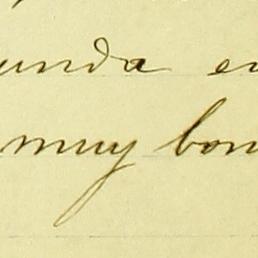 unda en
muy bon